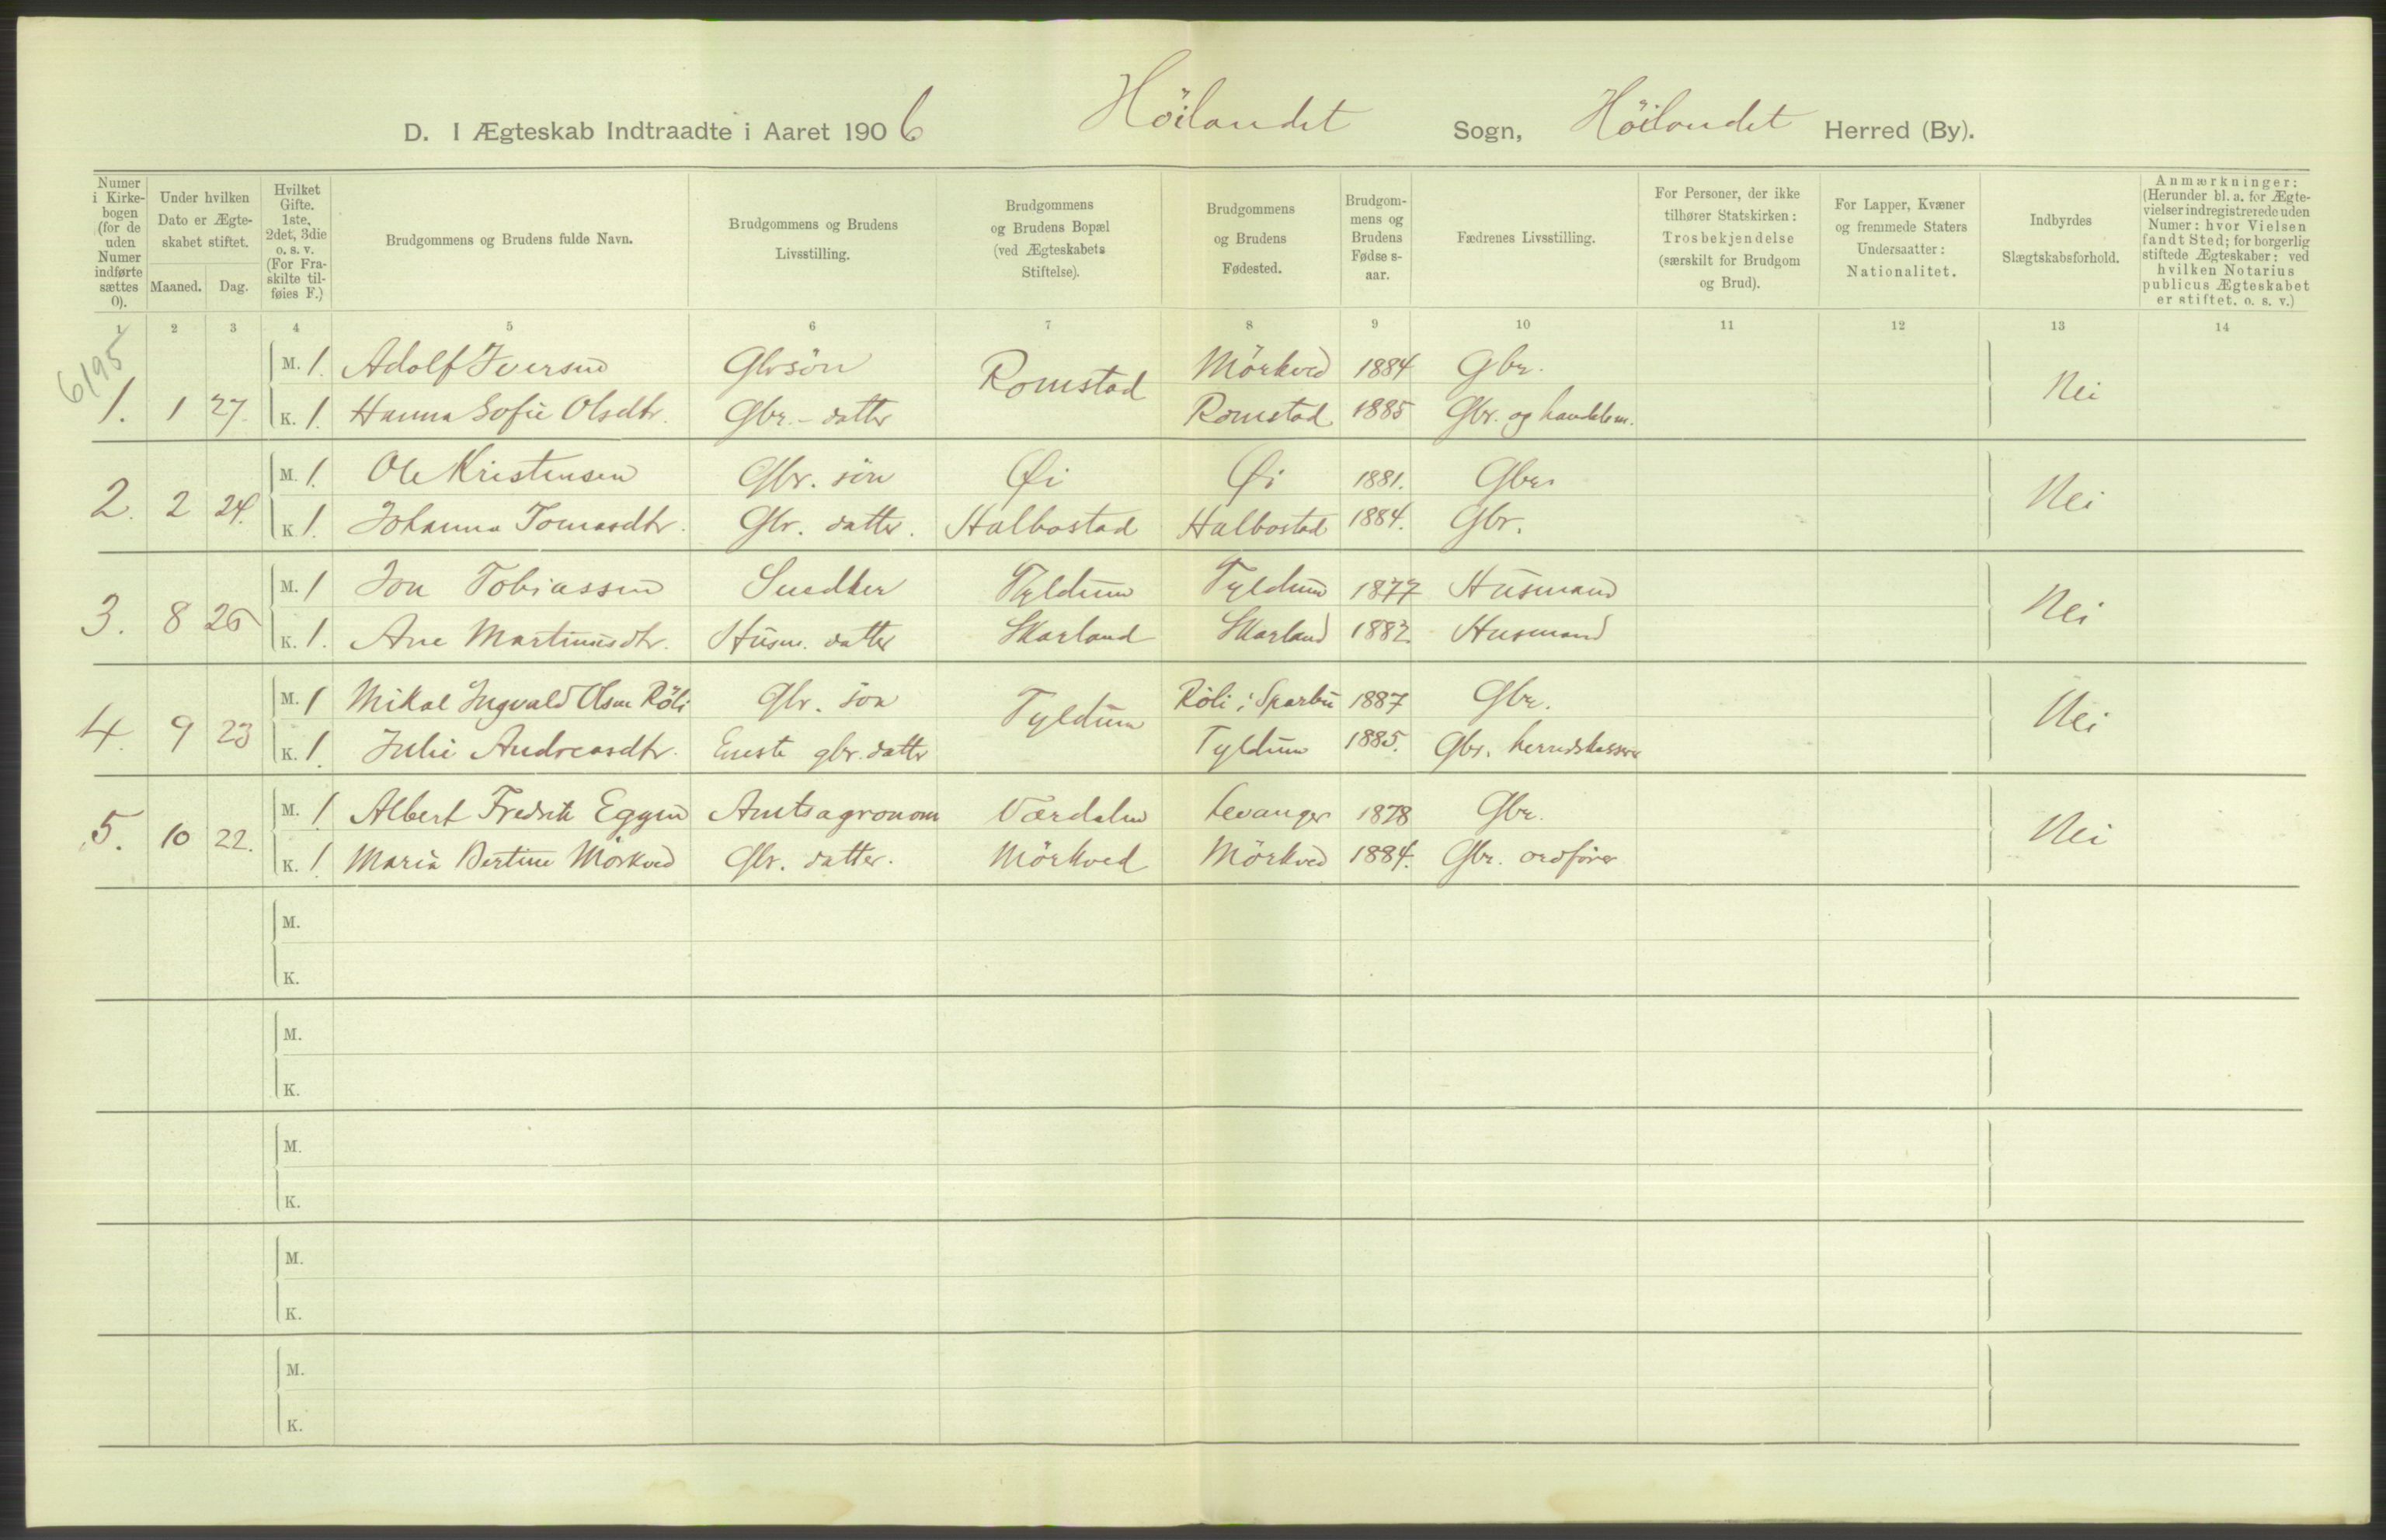 D. I Ægteskab Indtraadte i Aaret 1906 Höilandet Sogn, Höilandet Herred (By).
Numer i Kirkebogen (for de uden Numer indførte sættes 0).
Under hvilken Dato er Ægteskabet stiftet.
Maaned. Dag.
Hvilket Gifte. 1ste, 2det, 3die o. s. v. (For Fraskilte tilføies F.)
Brudgommens og Brudens fulde Navn.
Brudgommens og Brudens Livsstilling.
Brudgommens og Brudens Bopæl (ved Ægteskabets Stiftelse).
Brudgommens og Brudens Fødested.
Brudgommens og Brudens Fødselsaar.
Fædrenes Livsstilling.
For Personer, der ikke tilhører Statskirken: Trosbekjendelse (særskilt for Brudgom og Brud).
For Lapper, Kvæner og fremmede Staters Undersaatter: Nationalitet.
Indbyrdes Slægtskabsforhold.
Anmærkninger: (Herunder bl. a. for Ægtevielser indregistrerede uden Numer: hvor Vielsen fandt Sted; for borgerlig stiftede Ægteskaber: ved hvilken Notarius publicus Ægteskabet er stiftet. o. s. v.)
1 2 3 4 5 6 7 8 9 10 11 12 13 14
6195
M. 1. Adolf Iversen Gbrsön Romstad Mörkved 1884 Gbr.
1. 1 27. K. 1. Hanna Sofie Olsdtr. Gbr.-datter Romstad 1885 Gbr. og handelsm. Nei
M. 1. Ole Kristensen Gbr. sön Øi Øi 1881. Gbr.
2. 2 24. K. 1. Johanna Tomasdtr. Gbr. datter. Halbostad Halbostad 1884. Gbr. Nei
M. 1 Jon Tobiassen Snedker Tyldum Tyldum 1877 Husmand
3. 8 26 K. 1. Ane Martinusdtr. Husm. datter Skarland Skarland 1882. Husmand Nei
M. 1 Mikal Ingvald Olsen Röli Gbr. sön Tyldum Röli i Sparbu 1887 Gbr.
4. 9 23 K. 1. Julie Andreasdtr. Eneste gbr. datter Tyldum 1885. Gbr. herredskasserer Nei
M. 1. Albert Fredrik Eggen Amtsagronom Værdalen Levanger 1878 Gbr.
5. 10 22. K. 1. Maria Bertine Mörkved Gbr. datter. Mörkved Mörkved 1884. Gbr. ordfører Nei
M.
K.
M.
K.
M.
K.
M.
K.
M.
K.